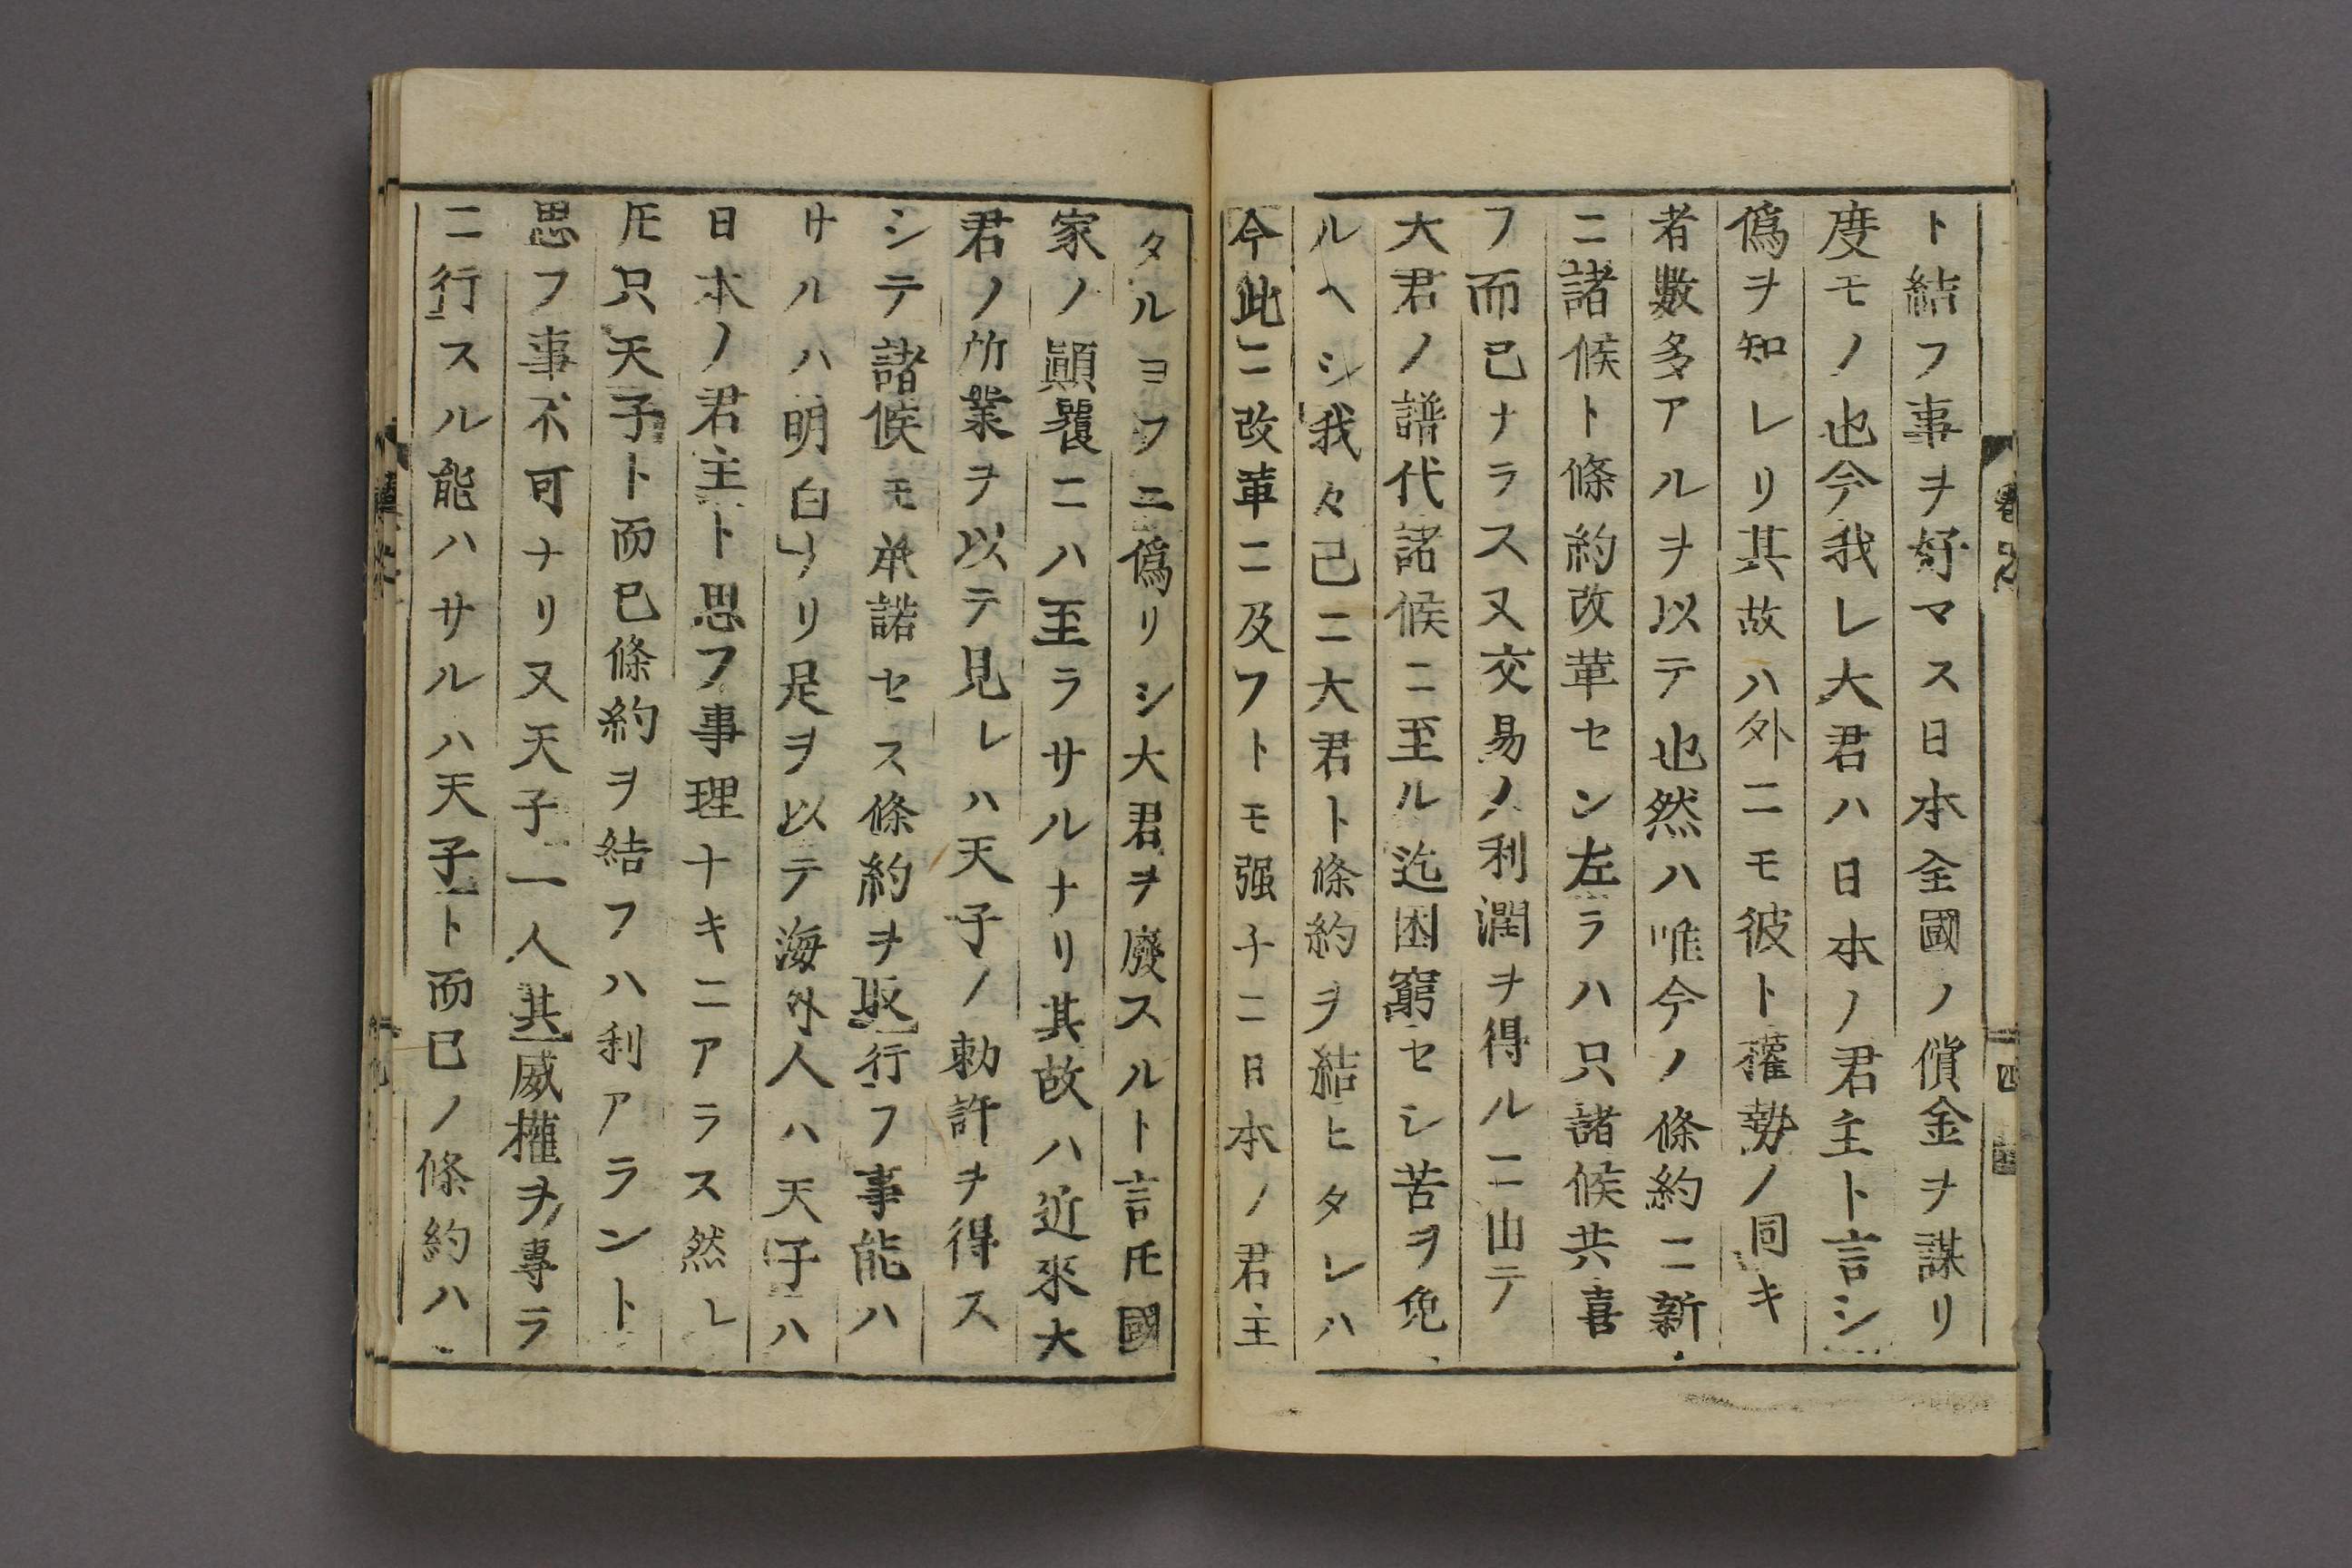 ト結フ事ヲ好マス日本全國ノ償金ヲ謀リ
度モノ也今我レ大君ハ日本ノ君主ト言シ
僞ヲ知レリ其故ハ外ニモ彼ト權勢ノ同キ
者數多アルヲ以テ也然ハ唯今ノ條約ニ新
ニ諸候ト條約改革セン左ラハ只諸候共喜
フ而已ナラス又交易ノ利潤ヲ得ルニ山テ
大君ノ譜代諸候ニ至ル迄困窮セシ苦ヲ免
ルヘシ我々已ニ大君ト條約ヲ結ヒタレハ
今此ニ改革ニ及フトモ强チニ日本ノ君主
タルヨフニ僞リシ大君ヲ廢スルト言𪜈國
家ノ顚覆ニハ至ラサルナリ其故ハ近來大
君ノ所業ヲ以テ見レハ天子ノ勅許ヲ得ス
シテ諸候モ承諾セス條約ヲ取行フ事能ハ
サルハ明白ナリ是ヲ以テ海外人ハ天子ハ
日本ノ君主ト思フ事理ナキニアラス然レ
𪜈只天子ト而已條約ヲ結フハ利アラント
思フ事不可ナリ又天子一人其威權ヲ專ラ
ニ行スル能ハサルハ天子ト而已ノ條約ハ